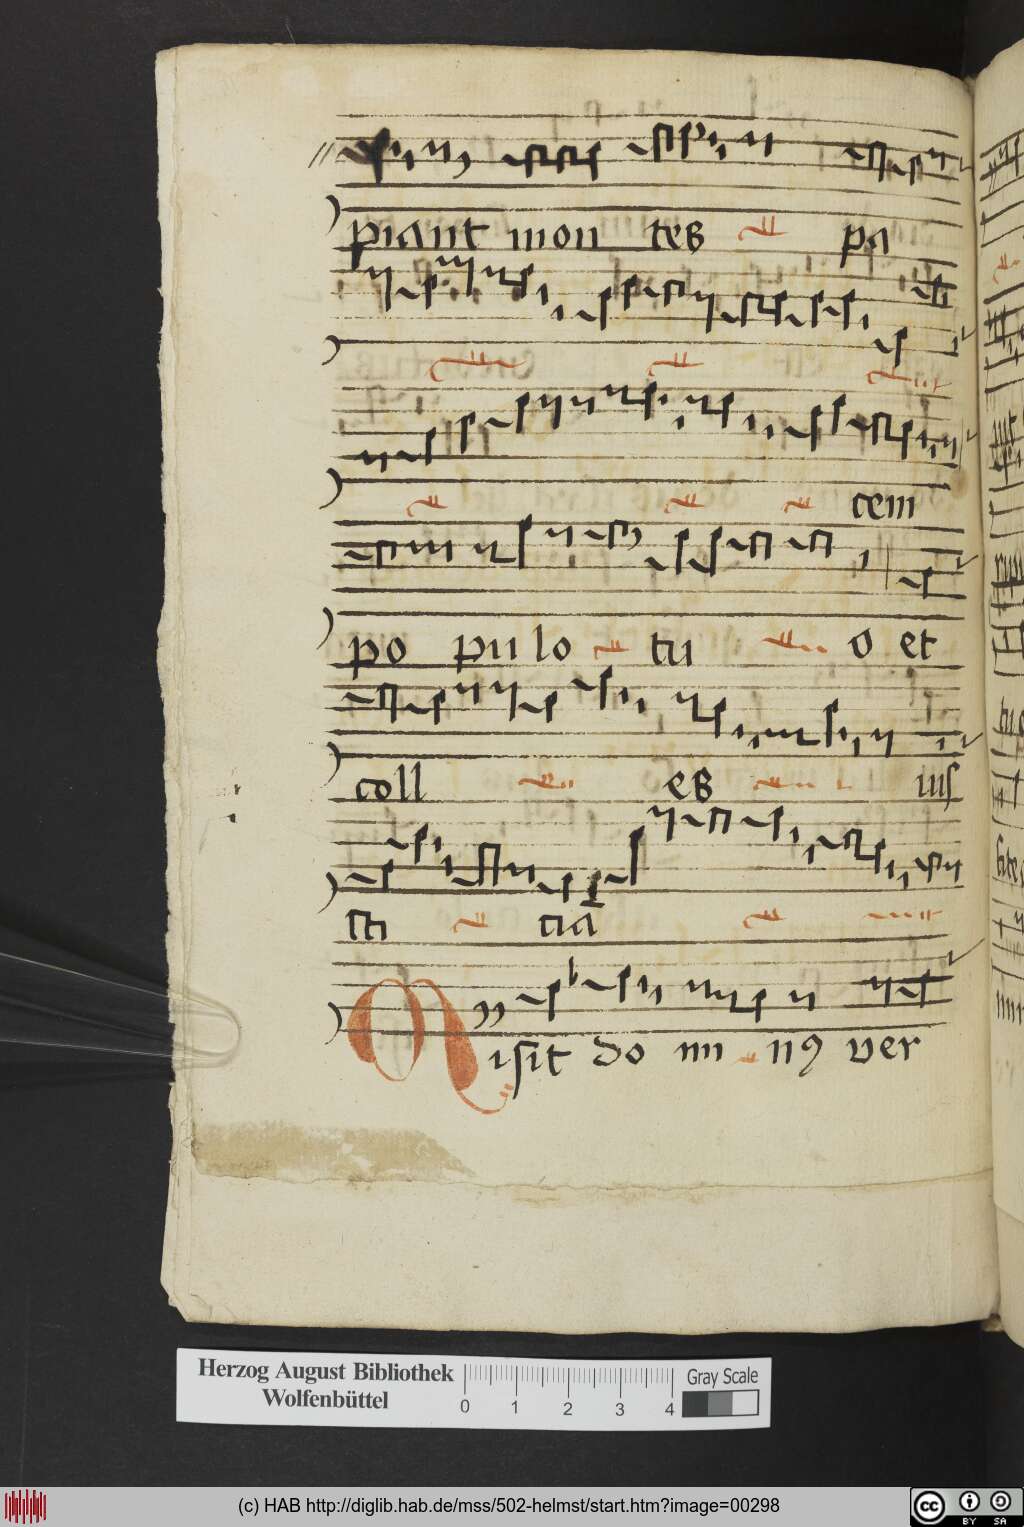 piant mon tes pa
cem
po pu lo tu o et
coll es ius
ti cia
Misit do mi nꝰ ver
Herzog August Bibliothek
Wolfenbüttel
0 1 2 3 4
Gray Scale
(c) HAB http://diglib.hab.de/mss/502-helmst/start.htm?image=00298
cc BY SA